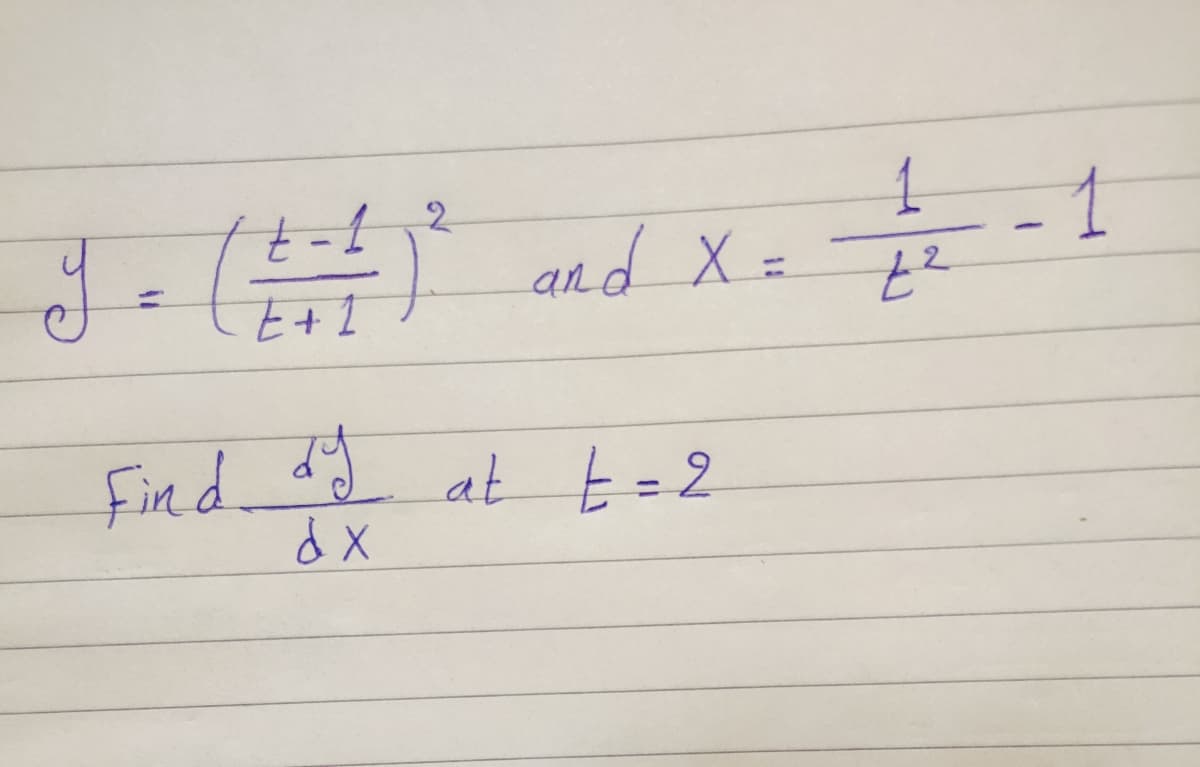 y = ((t-1)/(t+1))² and x = 1/t² - 1
Find dy/dx at t = 2